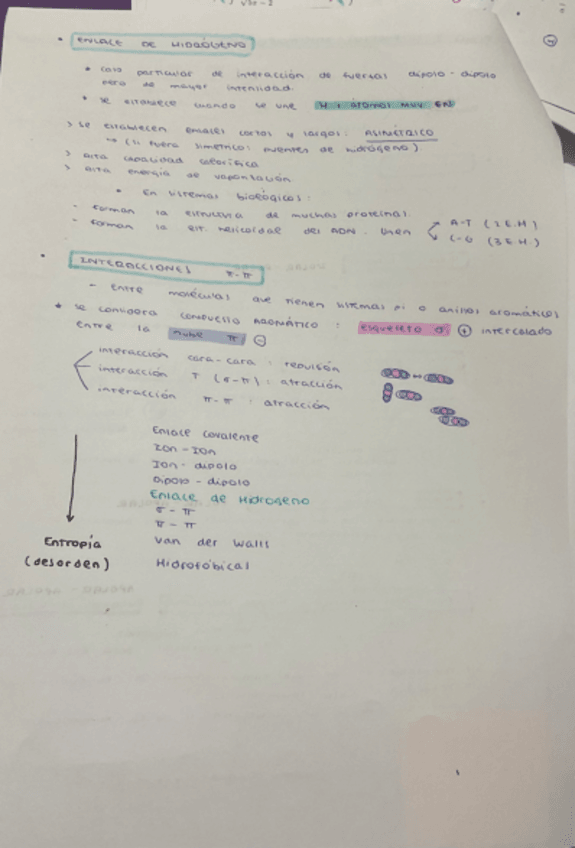 • ENLACE DE HIDRÓGENO
• caso particular de interacción de fuerzas dipolo - dipolo
pero de mayor intensidad.
• se establece cuando se une H : átomos muy EN
> se establecen enlaces cortos y largos : ASIMÉTRICO
→ (si fuera simétrico: puentes de hidrógeno)
> alta capacidad calorífica
> alta energía de vaporización
• En sistemas biológicos:
- forman la estructura de muchas proteínas.
- forman la est. helicoidal del ADN. Unen
A-T (2 E.H)
C-G (3 E.H.)
• INTERACCIONES π-π
- entre moléculas que tienen sistemas pi o anillos aromáticos
• Se considera AROMÁTICO : esqueleto σ + intercalado
entre la nube π -
interacción cara-cara : repulsión
interacción T (σ-π) : atracción
interacción π-π : atracción
Enlace covalente
Ion - Ion
Ion - dipolo
Dipolo - dipolo
Enlace de Hidrógeno
σ - π
π - π
Van der Walls
Hidrofóbicas
Entropía
(desorden)